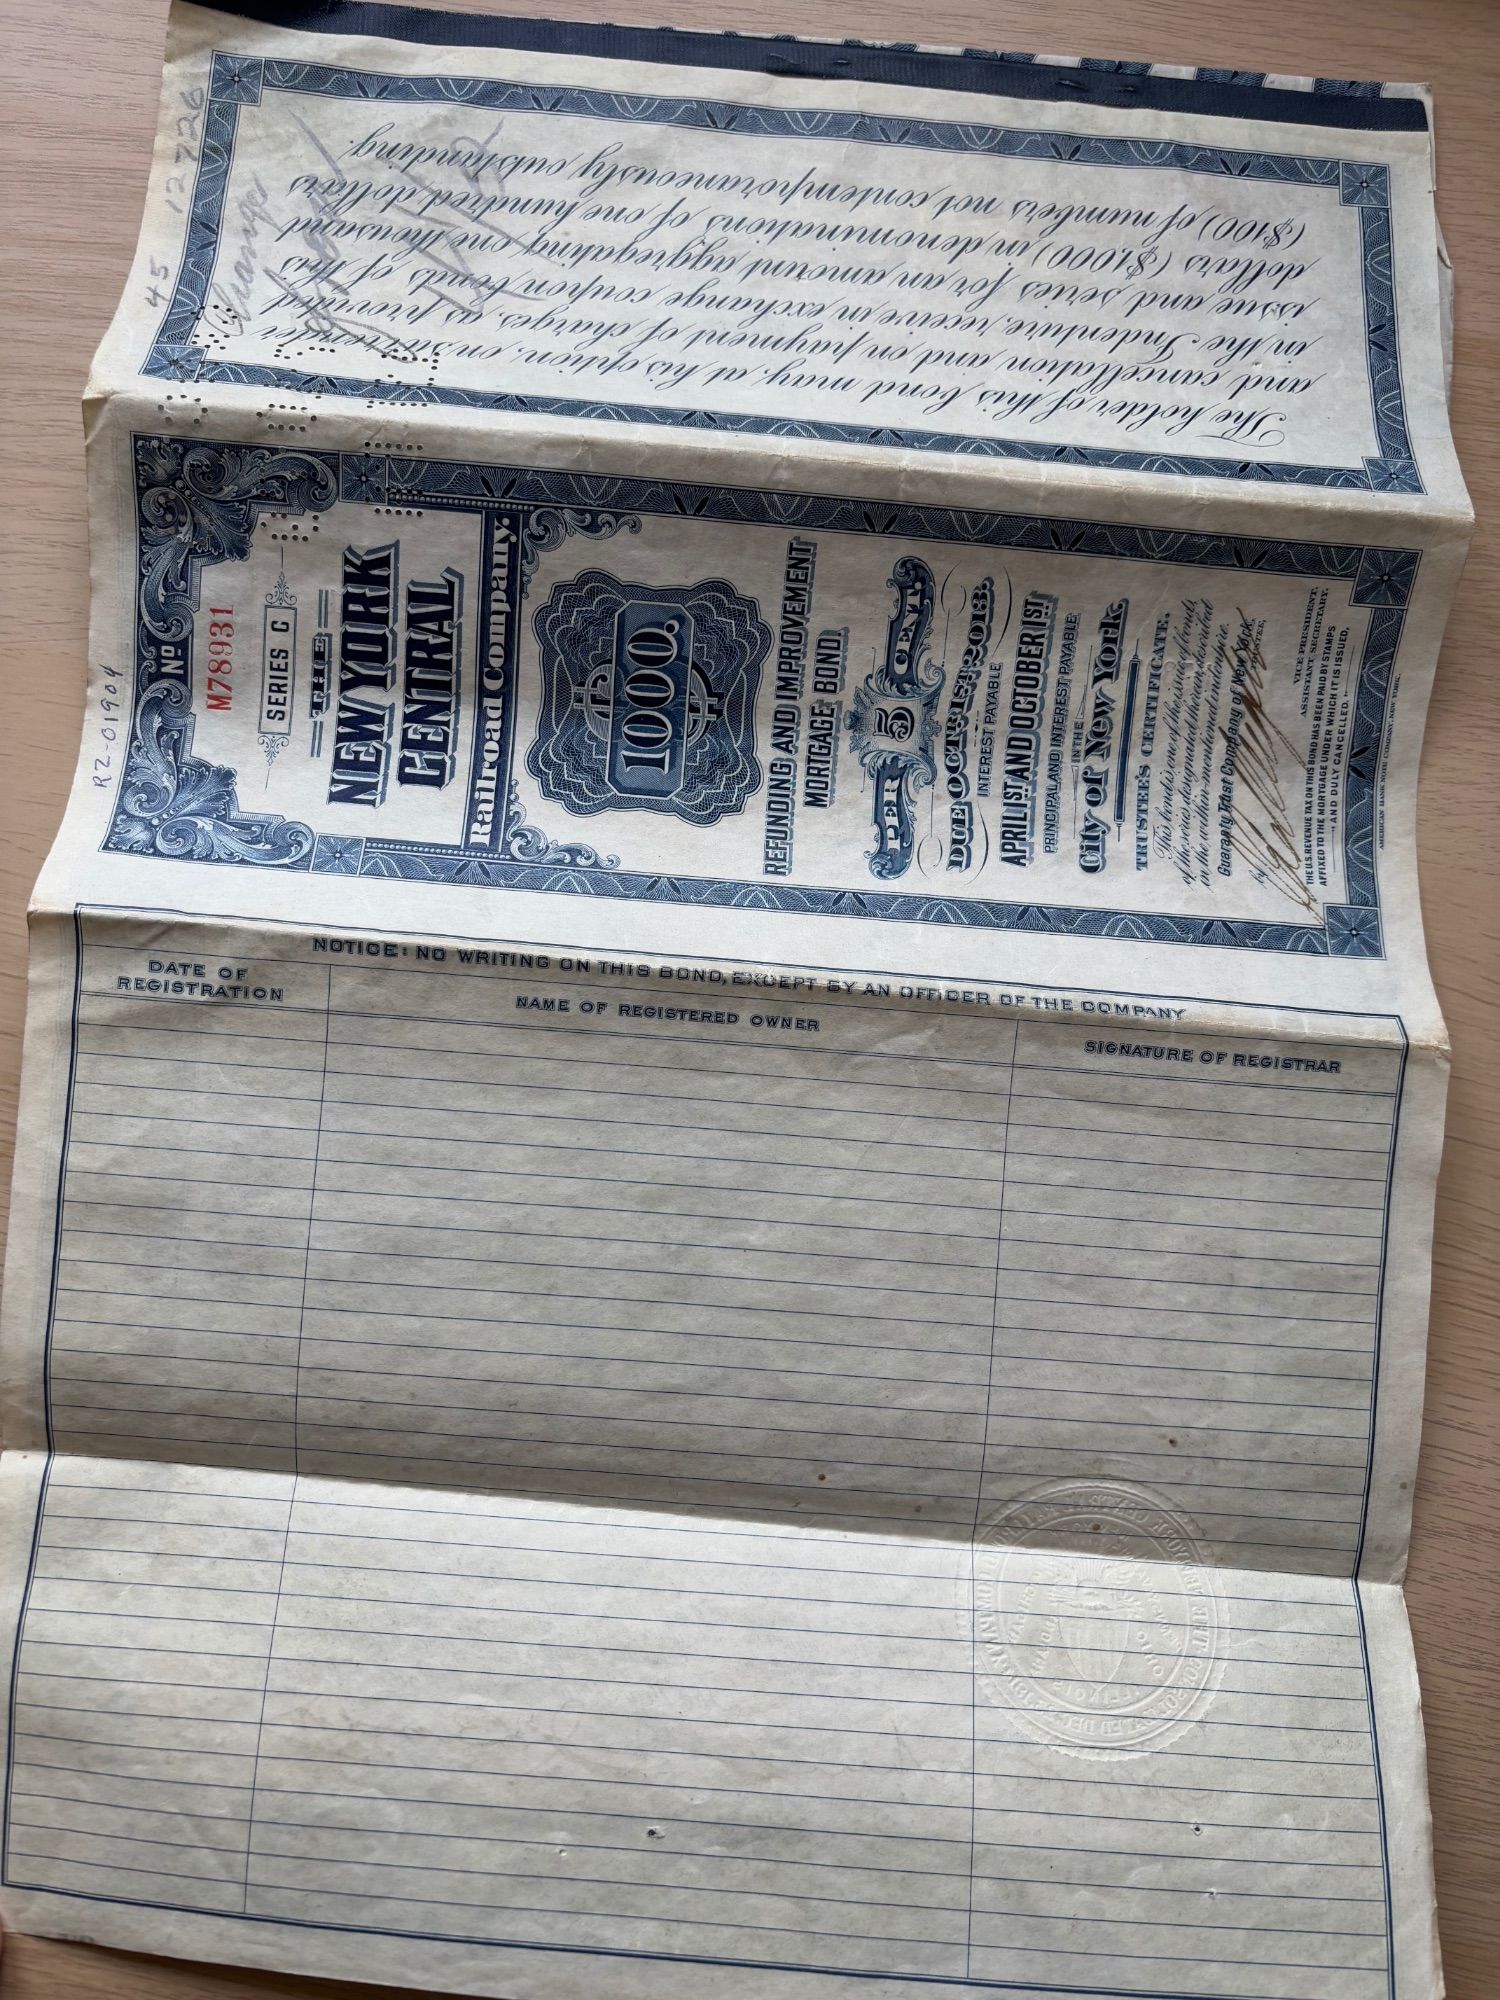 The holder of this bond may, at his option, on surrender
and cancellation and on payment of charges, as provided
in the Indenture, receive in exchange coupon bonds of this
issue and series for an amount aggregating one thousand
dollars ($1,000) in denominations of one hundred dollars
($100) of numbers not contemporaneously outstanding.
45 12726
R2-01904
No
M78931
SERIES C
THE
NEW YORK
CENTRAL
Railroad Company.
1000.
REFUNDING AND IMPROVEMENT
MORTGAGE BOND.
5 PER CENT.
DUE OCT. 1ST, 2013.
INTEREST PAYABLE
APRIL 1ST AND OCTOBER 1ST
PRINCIPAL AND INTEREST PAYABLE
IN THE
City of New York.
TRUSTEE'S CERTIFICATE.
This bond is one of the issue of bonds,
of the series designated therein, described
in the within-mentioned indenture.
Guaranty Trust Company of New York,
TRUSTEE,
by
VICE PRESIDENT.
ASSISTANT SECRETARY.
THE U.S. REVENUE TAX ON THIS BOND HAS BEEN PAID BY STAMPS
AFFIXED TO THE MORTGAGE UNDER WHICH IT IS ISSUED,
AND DULY CANCELLED.
AMERICAN BANK NOTE COMPANY, NEW YORK.
NOTICE: NO WRITING ON THIS BOND, EXCEPT BY AN OFFICER OF THE COMPANY
DATE OF
REGISTRATION
NAME OF REGISTERED OWNER
SIGNATURE OF REGISTRAR